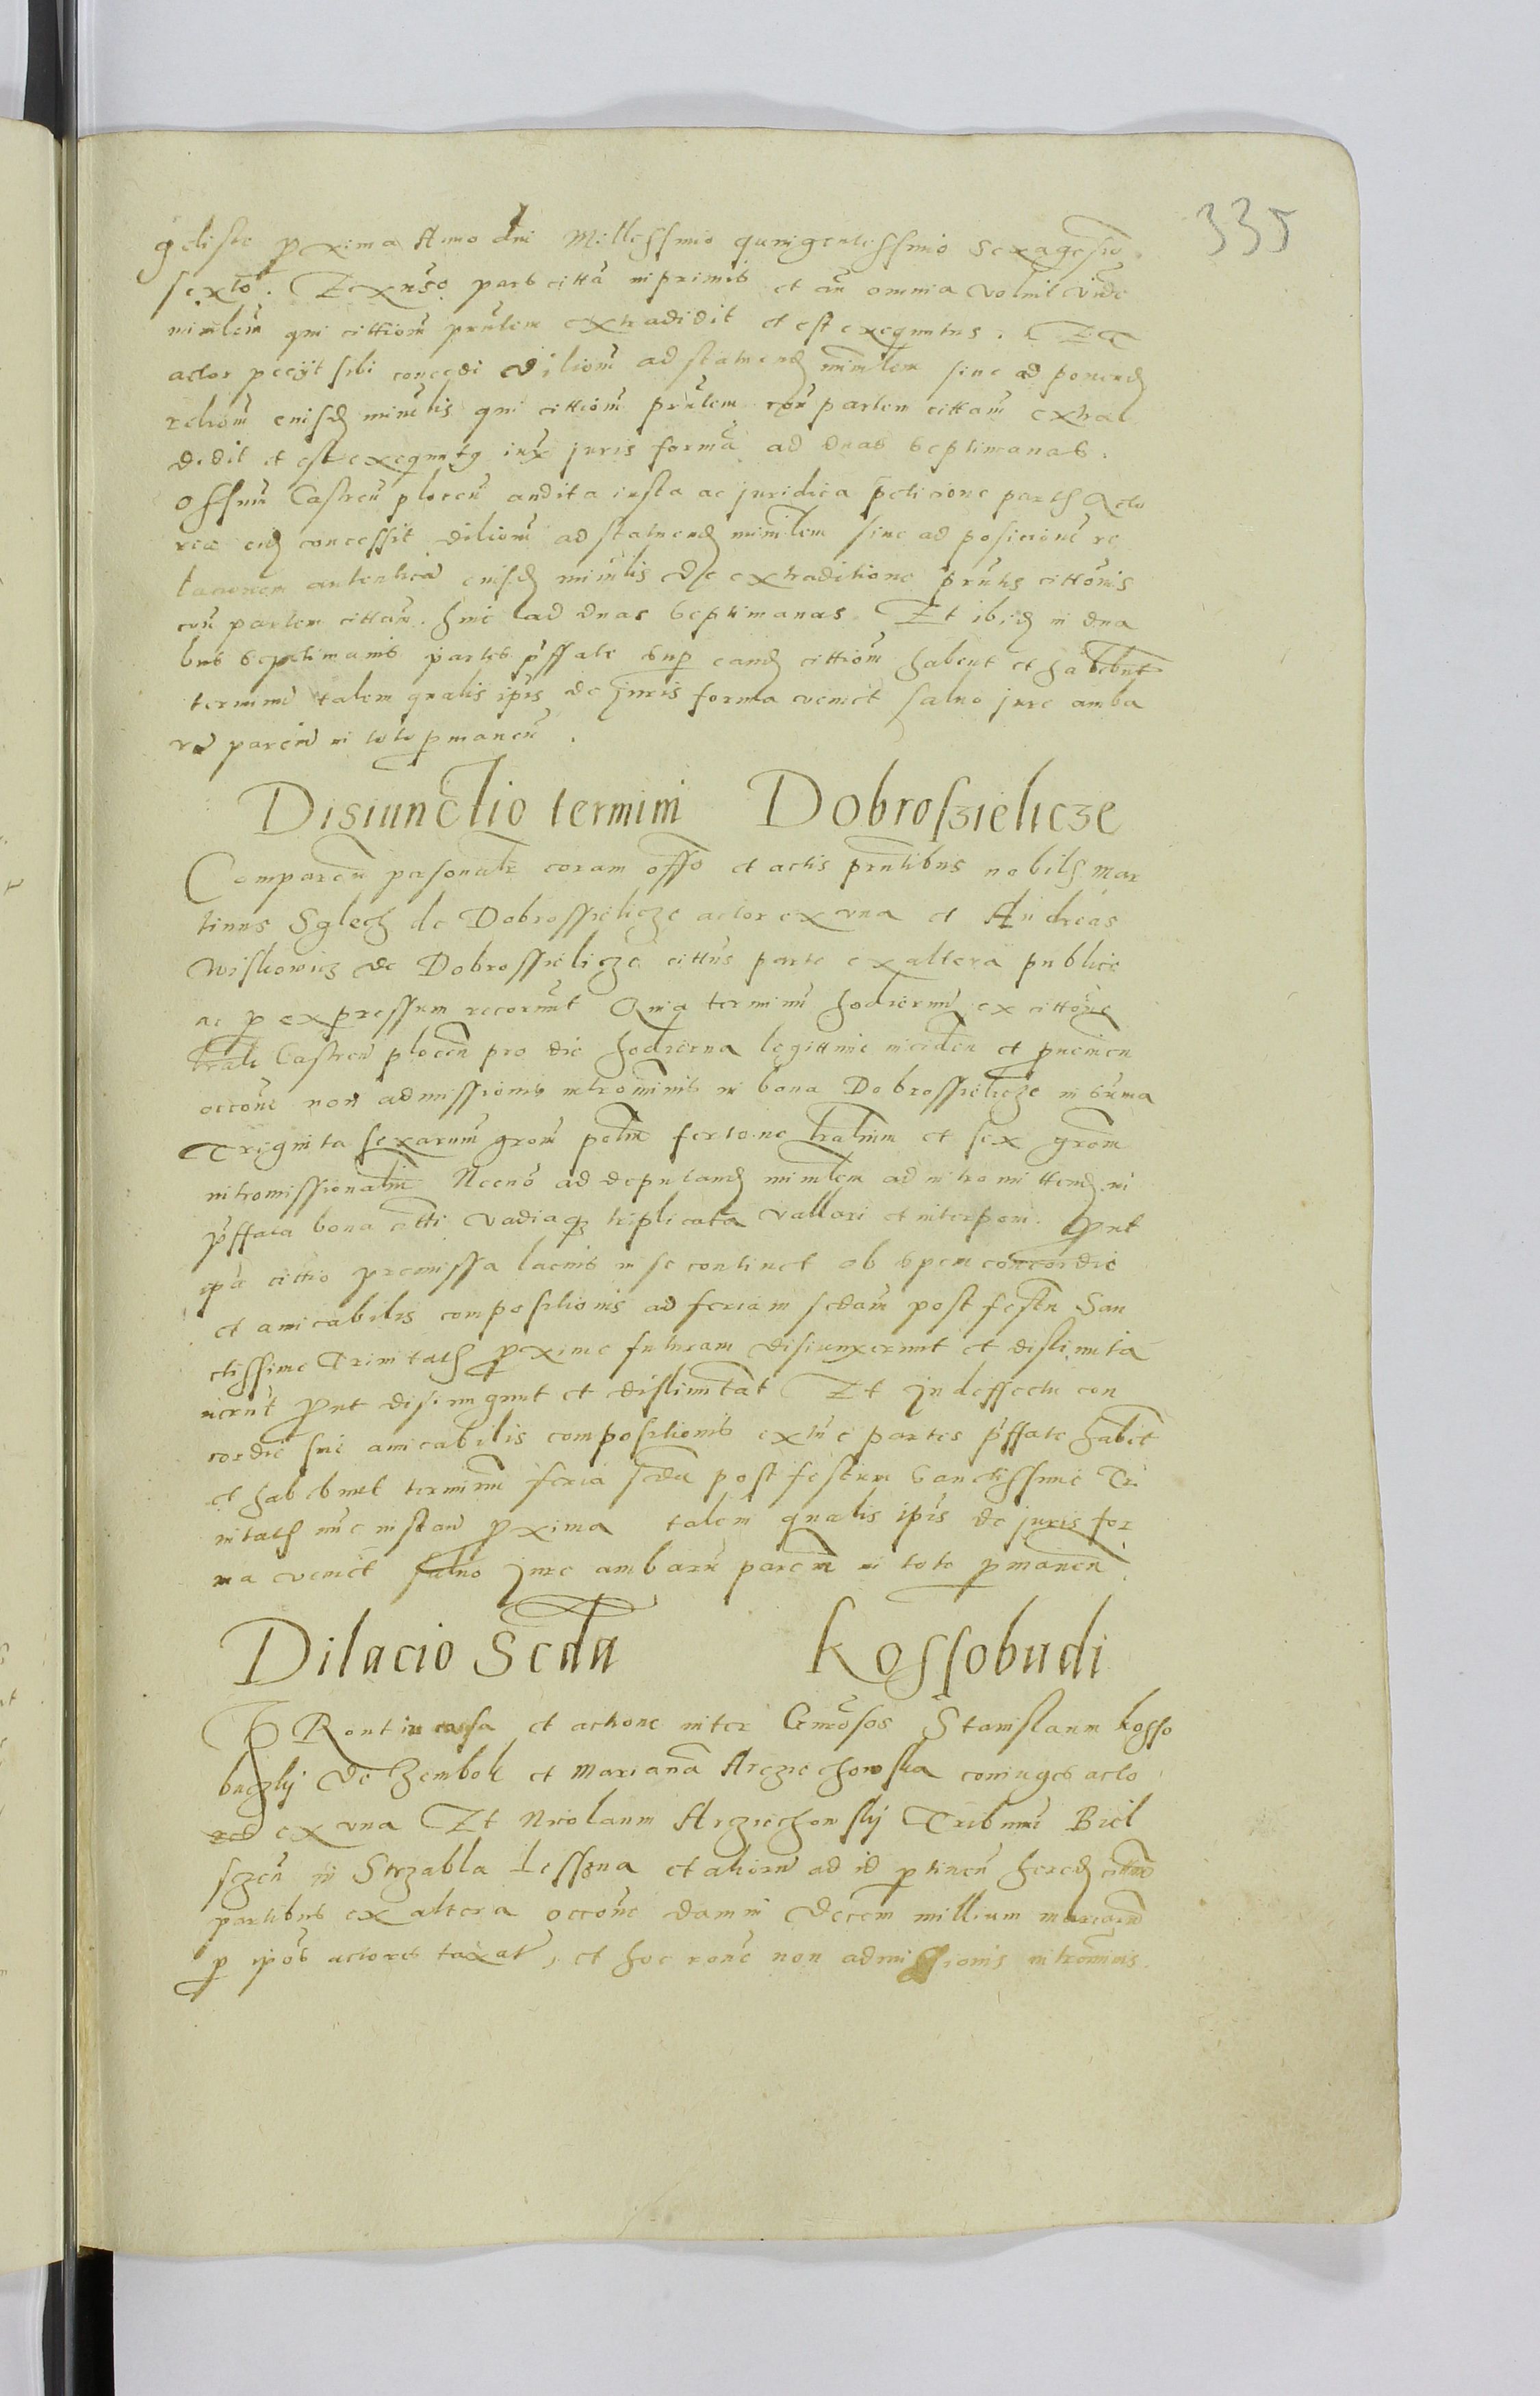 335
geliste proxima Anno dni Millessimo quingentessimo sexagesimo
sexto. Et ex nso pars citta inprimis et an omnia voluit vide
minlem qui cittiom prntem extradidit et est exequutus. Et
actor peciit sibi concedi diliom ad statuend minlem siue ad ponend
reliom eiusd minrlis qui cittiom prntem con partem cittam extra
dedit et est exequutg iux juris forma ad duas septimanas.
Offium Castren plocen audita iusta ac juridica peticione partis Acto
ree eid concessit diliom ad statuend minlem siue ad posicione re
lacionem autentica eiusd minrlis de extraditione prntis cittonis
con partem cittam. hinc ad duas septimanas. Et ibid in dua
bus septimanis partes pffate sup eand cittiom habent et habebunt
terminu talem qualis ipis de juris forma veniet saluo jure amba
ru parciu in toto pmanen.
Disiunctio termini Dobroszielicze
Comparen personalr coram offo et actis prntibus nobils Mar
tinus Sglech de Dobrossielicze actor ex vna et Andreas
Wiskowicz de Dobrossielicze cittus parte ex altera publice
ac p expressum recorunt Quia terminu hodiernu ex cittone
trali Castren plocen pro die hodierna legittime inciden et pueinen
occone non admissionis introminis in bona Dobrossielicze in suma
Triginta sexarum grom polm fertone tralium et sex grom
intromissionalm Necno ad deputand minlem ad intromittend in
pffata bona etti vadiaq triplicata vallari et interpom. Prut
ipa cittio premissa lacius in se continet ob spem concordie
et amicabilis compositionis ad feriam scdam post festu San
ctissime Trinitatis proxime futuram disiunxerunt et dislimita
uerunt Prut disiungunt et dislimitat Et In deffectu con
cordie siue amicabilis compositionis extuc partes pffate habet
et habebunt terminu feria scda post festum Sanctissime Tri
nitatis nuc instan proxima talem qualis ipis de juris for
ma veniet saluo jure ambaru parciu in toto pmanen.
Dilacio Scda Kossobudi
PRout in causa et actione inter Gnrosos Stanislaum Kosso
buczky de Zembok et Mariana Arczechowska coniuges acto
res ex vna Et Nicolaum Arczechowsky Tribunu Biel
szcen in Strzabla Lessna et aliorum ad id ptinen hered cittum
partibus ex altera occone damni decem millium marcaru
p ipos actores taxat, et hoc rone non admissionis introminis.